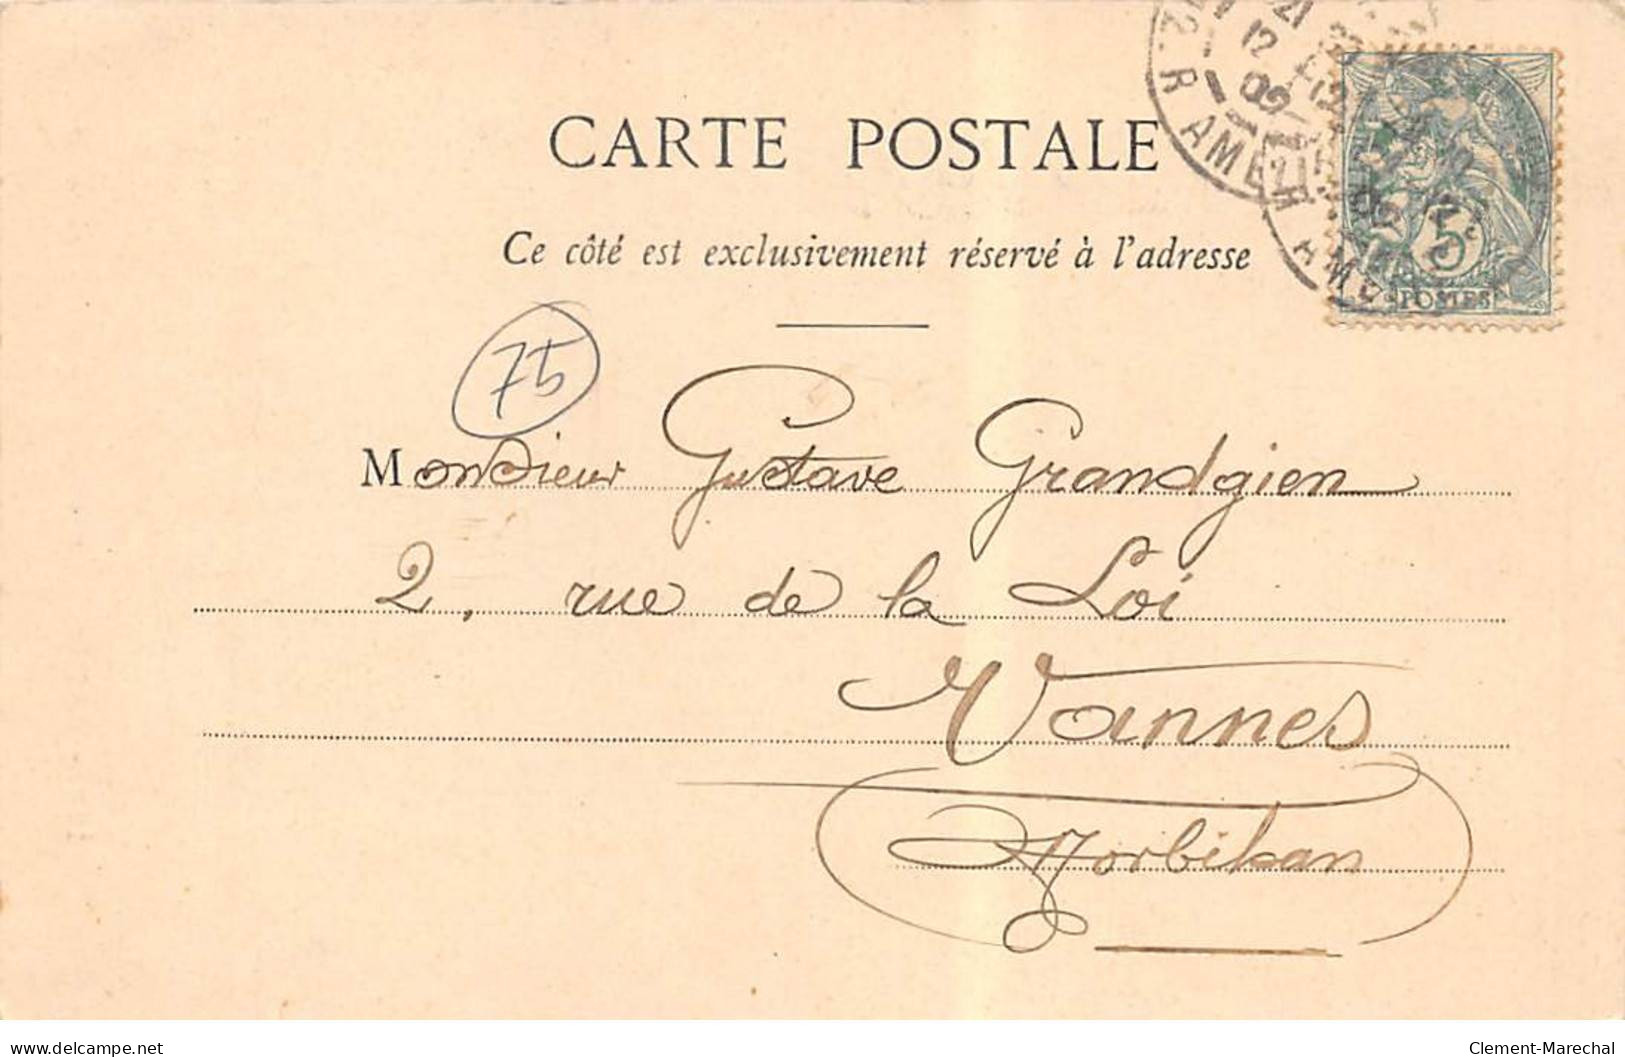 CARTE POSTALE
Ce côté est exclusivement réservé à l'adresse
75
Monsieur Gustave Grandgien
2, rue de la Loi
Vannes
Morbihan
5c
POSTES
R AMEL
21
12
02
R AME
delcampe.net
Clement-Marechal